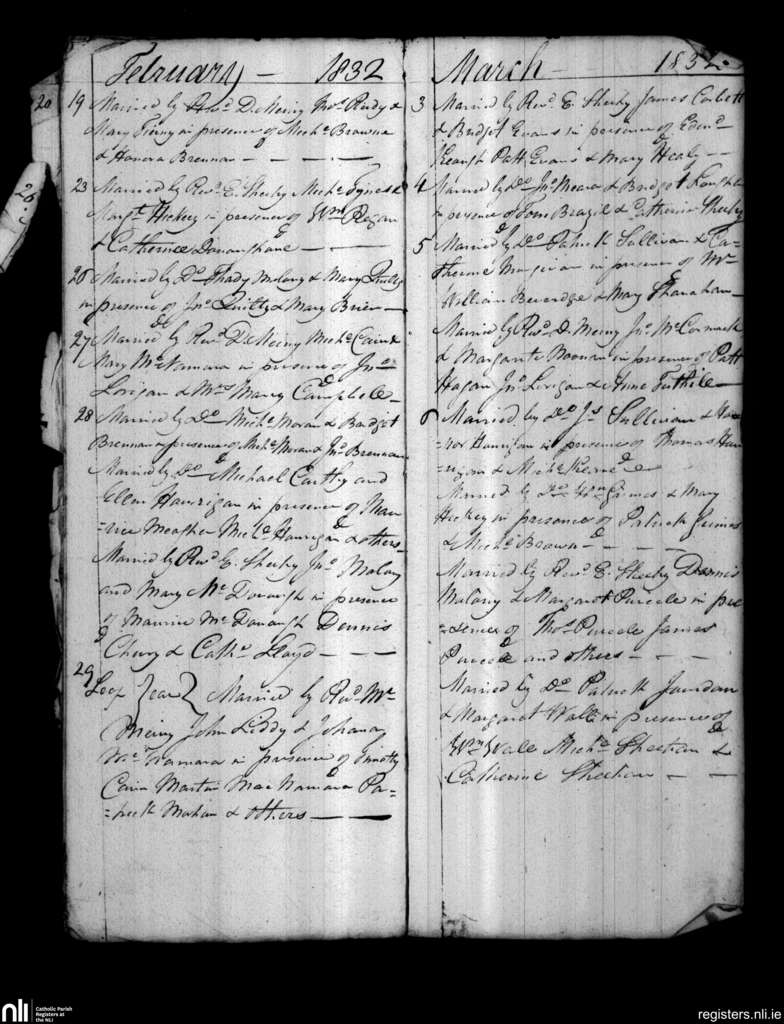 February — 1832
20
19 Married by Revd. D. Meiny Thos. Rudy &
Mary in presence of Michl. Browne
& Honora Brennan — — —
26
23 Married by Revd. E. Sheehy Michl. Tynes &
Margt. Hickey in presence of Wm. Regan
& Catherine —
26 Married by Do. Thady Molony & Mary Quilty
in presence of Jno. Quilty & Mary Brien —
27 Married by Revd. D. Meiny Michl. Cain &
Mary McNamara in presence of Jno.
Lorigan & Mrs. Mary Campbell —
28 Married by Do. Michl. Moran & Bridget
Brennan in presence of Michl. Moran & Jno. Brennan
Married by Do. Michael Carthy and
Ellen Hanrigan in presence of Mau-
=rice Meagher Michl. Hanrigan & others
Married by Revd. E. Sheehy Jno. Molony
and Mary McDonogh in presence
of Maurice McDonough Dennis
& Cathe. Lloyd — — —
29
Leep Year } Married by Revd. Mr.
Meiny John Liddy & Johanna
McNamara in presence of Timothy
Cain Martin MacNamara Pa-
=trick Mahon & others —
March 1832
3 Married by Revd. E. Sheehy James Corbett
& Bridget Evans in presence of Edmd.
Keough Patt. Evans & Mary Healy —
4 Married by Do. Jno. Meara & Bridget
in presence of Tom Brazil & Catherine Sheehy
5 Married by Do. Patrick Sullivan & Ca-
therine in presence of Mr.
William Beveridge & Mary Shanahan —
Married by Revd. D. Meiny Jno. McCormack
& Margarite Noonan in presence of Patt
Hagan Jno. Lorigan & Anne Tuthile —
6 Married by Do. Js. Sullivan & Hon-
=nor Hannigan in presence of Thomas Han-
=nigan & Michl.
Married by Do. Wm. Grimes & Mary
Hickey in presence of Patrick Grimes
& Michl. Brown — — —
Married by Revd. E. Sheehy Dennis
Molony & Margaret Purcele in pre
=sence of Thos. Purcele James
Purcele and others — — —
Married by Do. Patrick Jourdan
& Margaret Wall in presence of
Wm. Wale Michl. Sheehan &
Catherine Sheehan — —
nli
Catholic Parish
Registers at
the NLI
registers.nli.ie